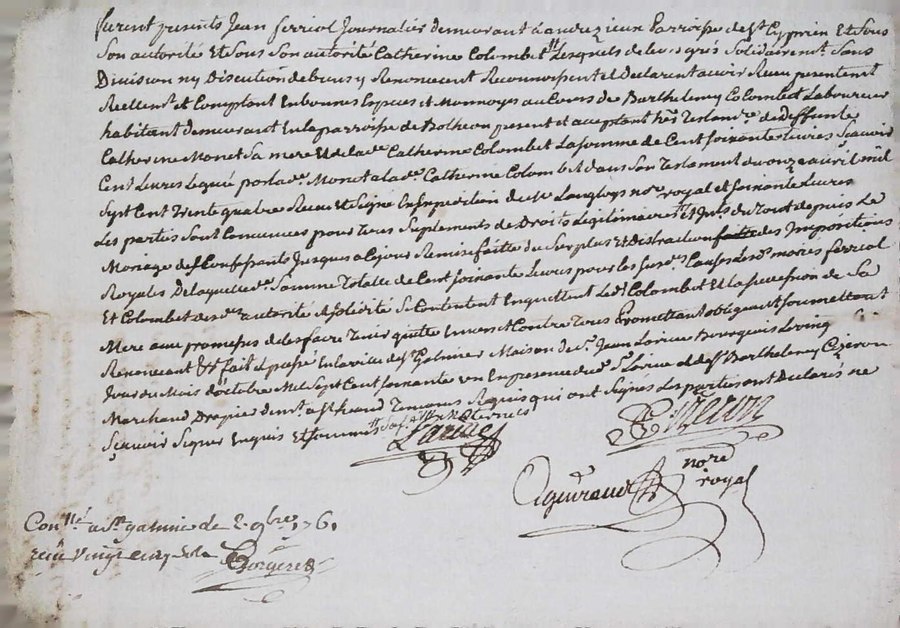 furent presents Jean ferriol Journalier demeurant a andrezieux Parroisse de St Cyprien Et Sous
Son autorité Et Sous Son autorité Catherine Colombet Lesquels de leurs grés Solidairemt Sans
Division ny Discution de biens y Renoncent Reconnoissent et Declarent avoir Receu presentemt
Reellemt et Comptant En bonnes Espces et Monnoyes au Cours de Barthelemy Colombet Laboureur
habitant demeurant En la parroisse de Botheon present et acceptant her Testamre de deffunte
Catherine Monet Sa mere Et de lade Catherine Colombet La somme de Cent Soixante Livres Sçavoir
Cent Livres Legué par lade Monet a lade Catherine Colombet dans Son Testament du onze avril mil
Sept Cent Trente quatre Receu Et Signé En Expedition de Langloys nore royal et Soixante Livres
Les parties Sont Convenues pour Tous Suplements de Droits Legitimaires Et du Tout depuis Le
Mariage des Confessants Jusques a Ce jour Remise faitte du Surplus Et Distraction faitte des Impositions
Royales De laquelle de Somme Totalle de Cent Soixante Livres pour les Causes Les mariés ferriol
Et Colombet de autorité Se Contentent En quittent Led Colombet Et la Succession de Sa
Mere aux promesses de les faire Tenir quitte Envers et Contre Tous Promettant obligeant Soumettant
Renoncant &c fait & passé En la ville de St Galmier Maison de Sr Jean Bourgeois Le
Jour du Mois d'octobre Mil Sept Cent Soixante un En presence de Sr Et de Sr Barthelemy Ezeron
Marchand Drapier demt a St Temoins Requis qui ont Signés Les parties ont Declarés ne
Sçavoir Signer Enquis Et Sommés
nore
royal
Conllé a St galmier le 8bre 1761
receu Vingt cinq sols